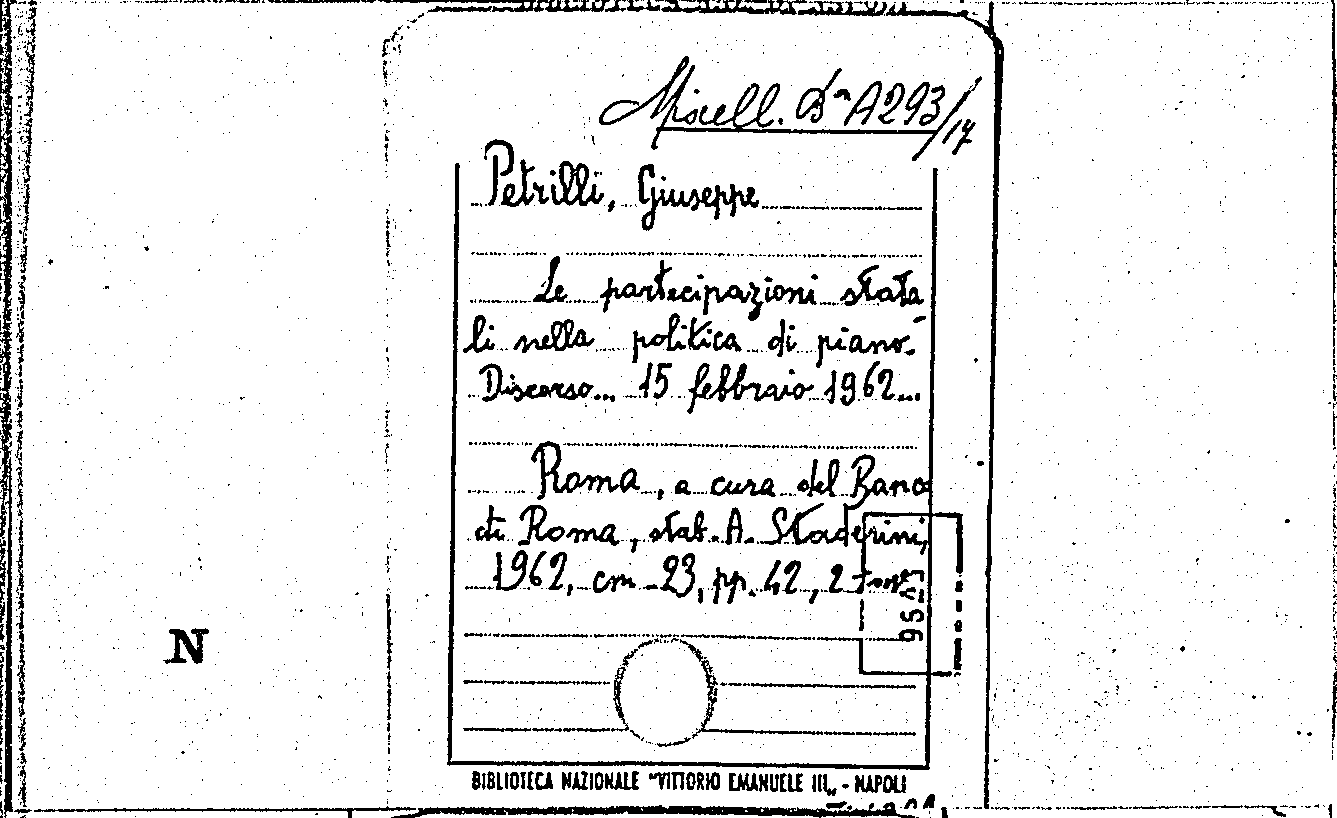 Miscell. Bª A293/17
Petrilli, Giuseppe
Le partecipazioni stata
li nella politica di piano.
Discorso... 15 febbraio 1962...
Roma, a cura del Banco
di Roma, stab. A. Staderini,
1962, cm. 23, pp. 42, 2
N
BIBLIOTECA NAZIONALE "VITTORIO EMANUELE III„ - NAPOLI